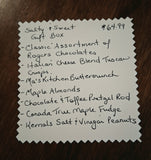 Salty & Sweet $64.99
Gift Box
Classic Assortment of
Rogers Chocolates
Italian Cheese Blend Tuscan
Crisps
Ma's Kitchen Buttercrunch
Maple Almonds
Chocolate & Toffee Pretzel Rod
Canada True Maple Fudge
Kernals Salt & Vinegar Peanuts